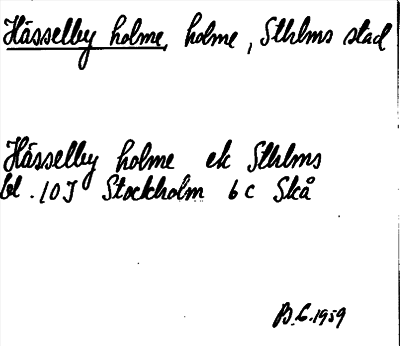 Hässelby holme, holme, Sthlms stad
Hässelby holme ek Sthlms
bl. 10 I Stockholm 6 c Skå
B.G. 1959